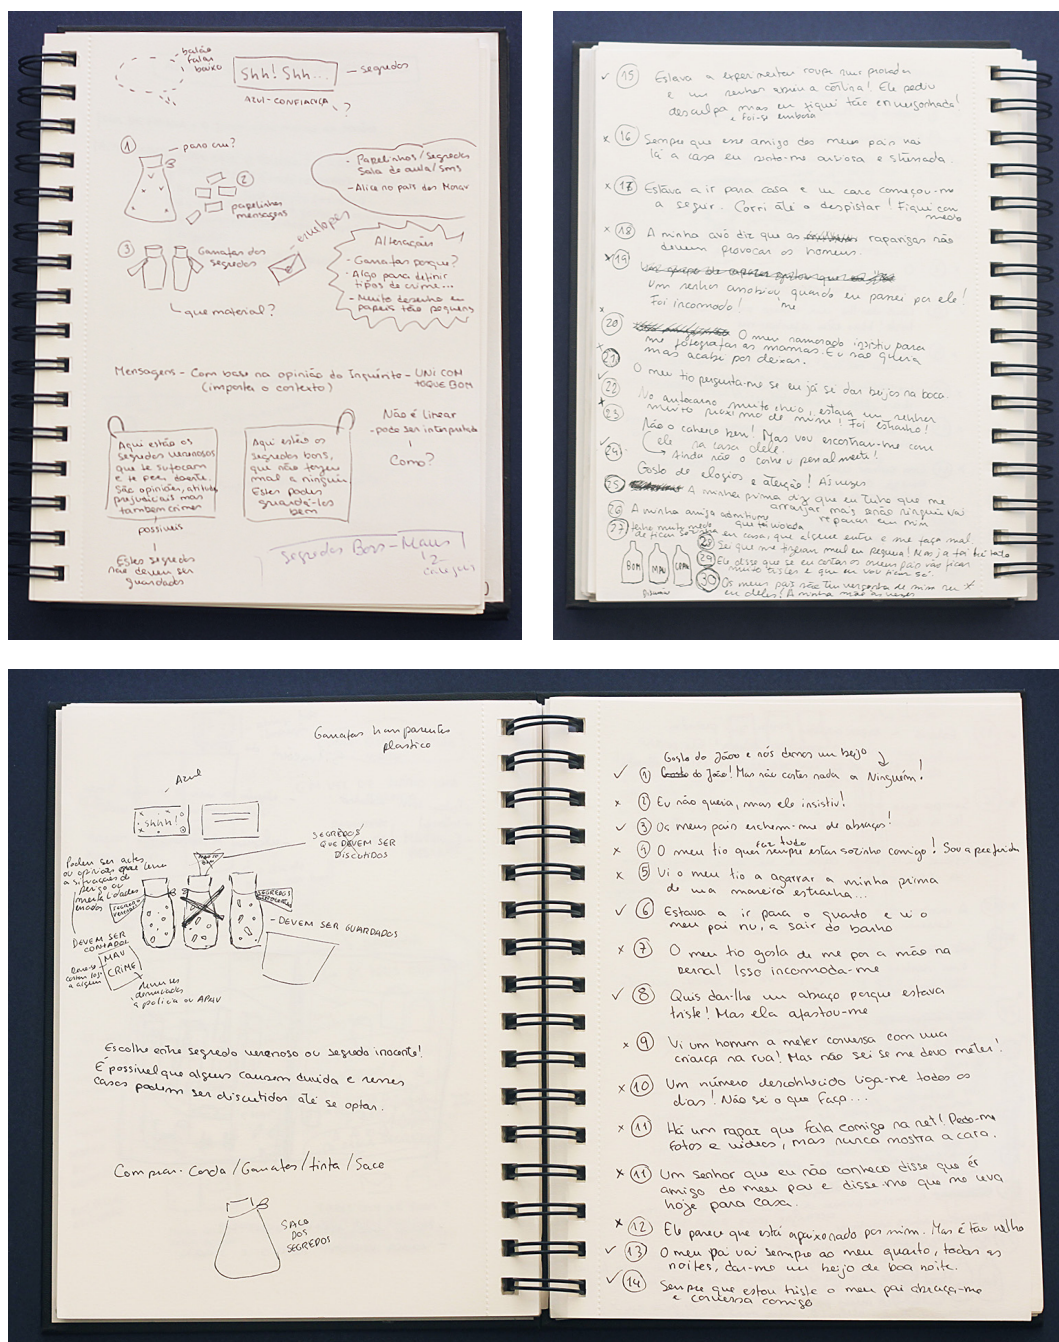 balão
falar
baixo
Shh! Shh... – segredos
AZUL-CONFIANÇA
?
1
para cru?
2
papelinhos
mensagens
- Papelinhos/segredos
Sala de aula/sms
- Alice no país das Marav
3
Garrafas dos
segredos
envelopes
que material?
Alterações
- Garrafas porque?
- Algo para definir
tipos de crime...
- Muito desenho em
papeis tão pequenos
Mensagens - Com base na opinião do Inquérito - UNI COM
TOQUE BOM
(importa o contexto)
Aqui estão os
segredos venenosos
que te sufocam
e te poem doente.
São opiniões, atitudes
prejudiciais mas
tambem crimes
possiveis
Estes segredos
não devem ser
guardados
Aqui estão os
segredos bons,
que não fazem
mal a ninguém
Estes podes
guardá-los
bem
Não é linear
- pode ser interpretado
Como?
Segredos Bons - Maus
2
15 Estava a experimentar roupa num provador
e um senhor abriu a cortina! Ele pediu
desculpa mas eu fiquei tão envergonhada!
e foi-se embora
16 Sempre que esse amigo dos meus pais vai
lá a casa eu sinto-me ansiosa e
17 Estava a ir para casa e um carro começou-me
a seguir. Corri até o despistar! Fiquei com
medo
18 A minha avó diz que as raparigas não
devem provocar os homens.
19
Um senhor assobiou quando eu passei por ele!
Foi incomodo!
20 O meu namorado insistiu para
me fotografar as mamas. Eu não queria
mas acabei por deixar.
21
O meu tio pergunta-me se eu já sei dar beijos na boca.
22
No autocarro muito cheio, estava um senhor
muito proximo de mim! Foi estranho!
23
Não o conheço bem! Mas vou encontrar-me com
ele na casa dele.
Ainda não o conheci pessoalmente!
24
Gosto de elogios e atenção! Às vezes
25 A minha prima diz que eu tenho que me
arranjar mais senão ninguém vai
reparar em mim
26 A minha amiga admitiu
que foi violada
27 Tenho muito medo
de ficar sozinha em casa, que alguem entre e me faça mal
28 Sei que me fizeram mal em pequena! Mas ja foi há tanto
29 Ele disse que se eu contar os meus pais vão ficar
muito tristes e que eu vou ficar só.
30 Os meus pais não têm vergonha de mim nem
eu deles! A minha mãe às vezes
BOM
MAU
CRIME
Garrafas transparentes
plastico
Azul
shhh!
SEGREDOS
QUE DEVEM SER
DISCUTIDOS
Podem ser actos
ou opiniões que levem
a situações de
perigo ou
mentalidades
erradas
SEGREDOS
VENENOSOS
SEGREDOS
INOCENTES
DEVEM SER
CONTADOS
- DEVEM SER GUARDADOS
MAU
CRIME
a alguem
devem ser
denunciados
à policia ou APAV
Escolhe entre segredo venenoso ou segredo inocente!
É possivel que alguns causem duvida e nesses
casos podem ser discutidos até se optar.
Comprar - Corda/Garrafas/tinta/Saco
SACO
DOS
SEGREDOS
Gosto do João e nós demos um beijo
1 Gosto do João! Mas não contes nada a Ninguém!
2 Eu não queria, mas ele insistiu!
3 Os meus pais enchem-me de abraços!
faz tudo
4 O meu tio quer sempre estar sozinho comigo! Sou a preferida
5 Vi o meu tio a agarrar a minha prima
de uma maneira estranha...
6 Estava a ir para o quarto e vi o
meu pai nu, a sair do banho
7 O meu tio gosta de me por a mão na
perna! Isso incomoda-me
8 Quis dar-lhe um abraço porque estava
triste! Mas ela afastou-me
9 Vi um homem a meter conversa com uma
criança na rua! Mas não sei se me devo meter!
10 Um número desconhecido liga-me todos os
dias! Não sei o que faço...
11 Há um rapaz que fala comigo na net! Pede-me
fotos e videos, mas nunca mostra a cara.
11 Um senhor que eu não conheço disse que és
amigo do meu pai e disse-me que me leva
hoje para casa.
12 Ele parece que está apaixonado por mim. Mas é tão velho
13 O meu pai vai sempre ao meu quarto, todas as
noites, dar-me um beijo de boa noite.
14 Sempre que estou triste o meu pai abraça-me
e conversa comigo